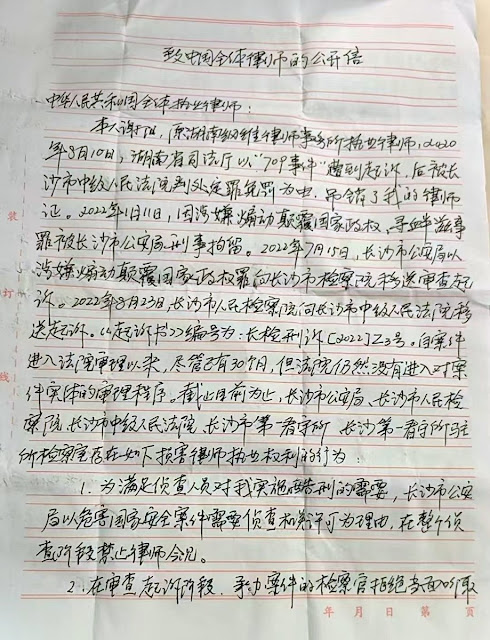 致中国全体律师的公开信
中华人民共和国全体执业律师：
本人谢阳，原湖南纲维律师事务所执业律师，2020
年8月10日，湖南省司法厅以“709事件”遭到起诉，后被长
沙市中级人民法院判处定罪免罚为由，吊销了我的律师
证。2022年1月11日，因涉嫌煽动颠覆国家政权、寻衅滋事
罪被长沙市公安局刑事拘留。2022年7月15日，长沙市公安局以
涉嫌煽动颠覆国家政权罪向长沙市检察院移送审查起
诉。2022年8月23日，长沙市人民检察院向长沙市中级人民法院移
送起诉。《起诉书》编号为：长检刑诉〔2022〕Z3号。自案件
进入法院审理以来，尽管已有30个月，但法院仍然没有进入对案
件实体的审理程序。截止目前为止，长沙市公安局、长沙市人民检
察院、长沙市中级人民法院、长沙市第一看守所、长沙第一看守所驻
所检察室存在如下损害律师执业权利的行为：
1. 为满足侦查人员对我实施酷刑的需要，长沙市公安
局以危害国家安全案件需要侦查机关许可为理由，在整个侦
查阶段禁止律师会见。
2. 在审查起诉阶段，承办案件的检察官拒绝当面听取
装
订
线
年 月 日 第 页